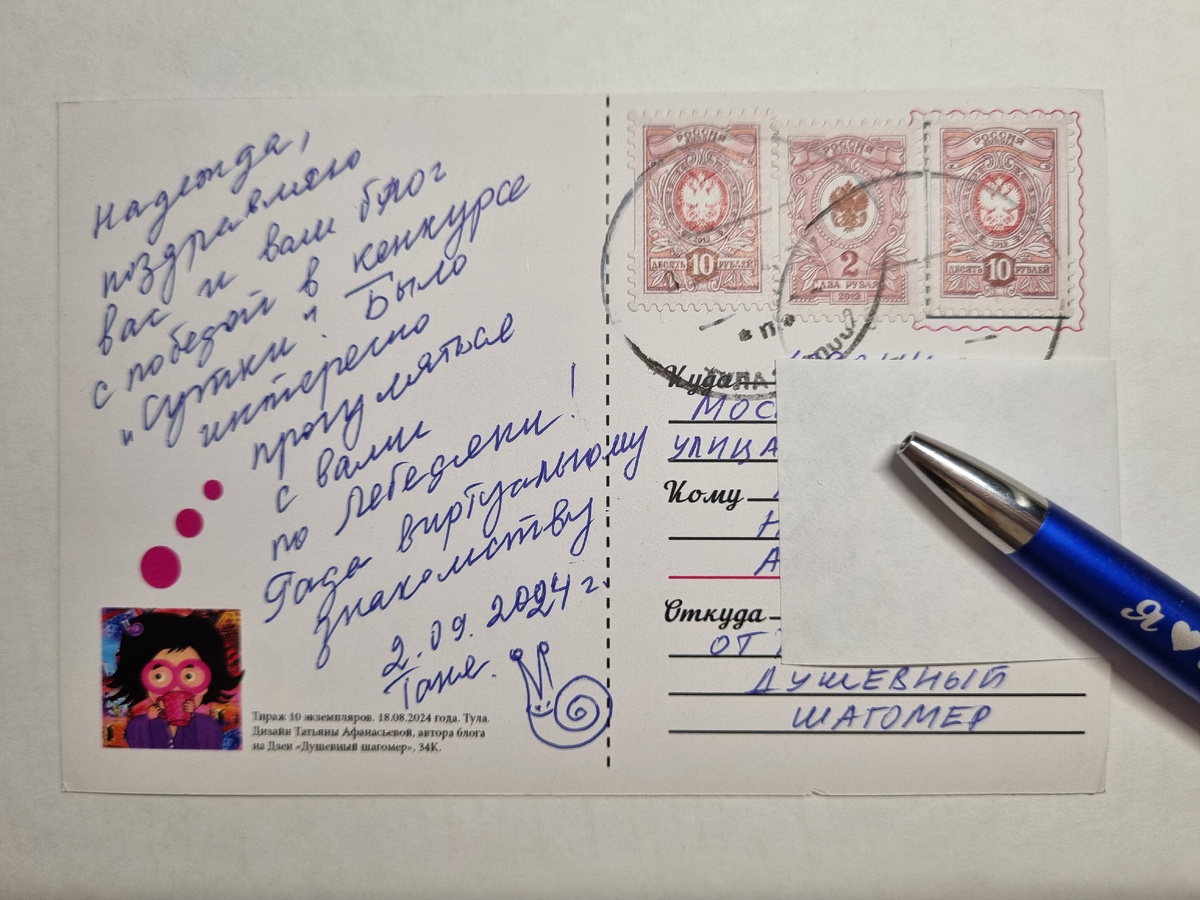 Надежда,
поздравляю
вас и ваш блог
с победой в конкурсе
"Сутки". Было
интересно
прогуляться
с вами
по Лебедяни!
Рада виртуальному
знакомству!
2.09.2024 г.
Таня.
Тираж 10 экземпляров. 18.08.2024 года. Тула.
Дизайн Татьяны Афанасьевой, автора блога
на Дзен «Душевный шагомер», 34К.
РОССИЯ
2019
ДЕСЯТЬ 10 РУБЛЕЙ
РОССИЯ
2
ДВА РУБЛЯ
2019
РОССИЯ
2019
ДЕСЯТЬ 10 РУБЛЕЙ
Куда
МОС
УЛИЦА
Кому
Н
А
Откуда
ОТ
ДУШЕВНЫЙ
ШАГОМЕР
Я